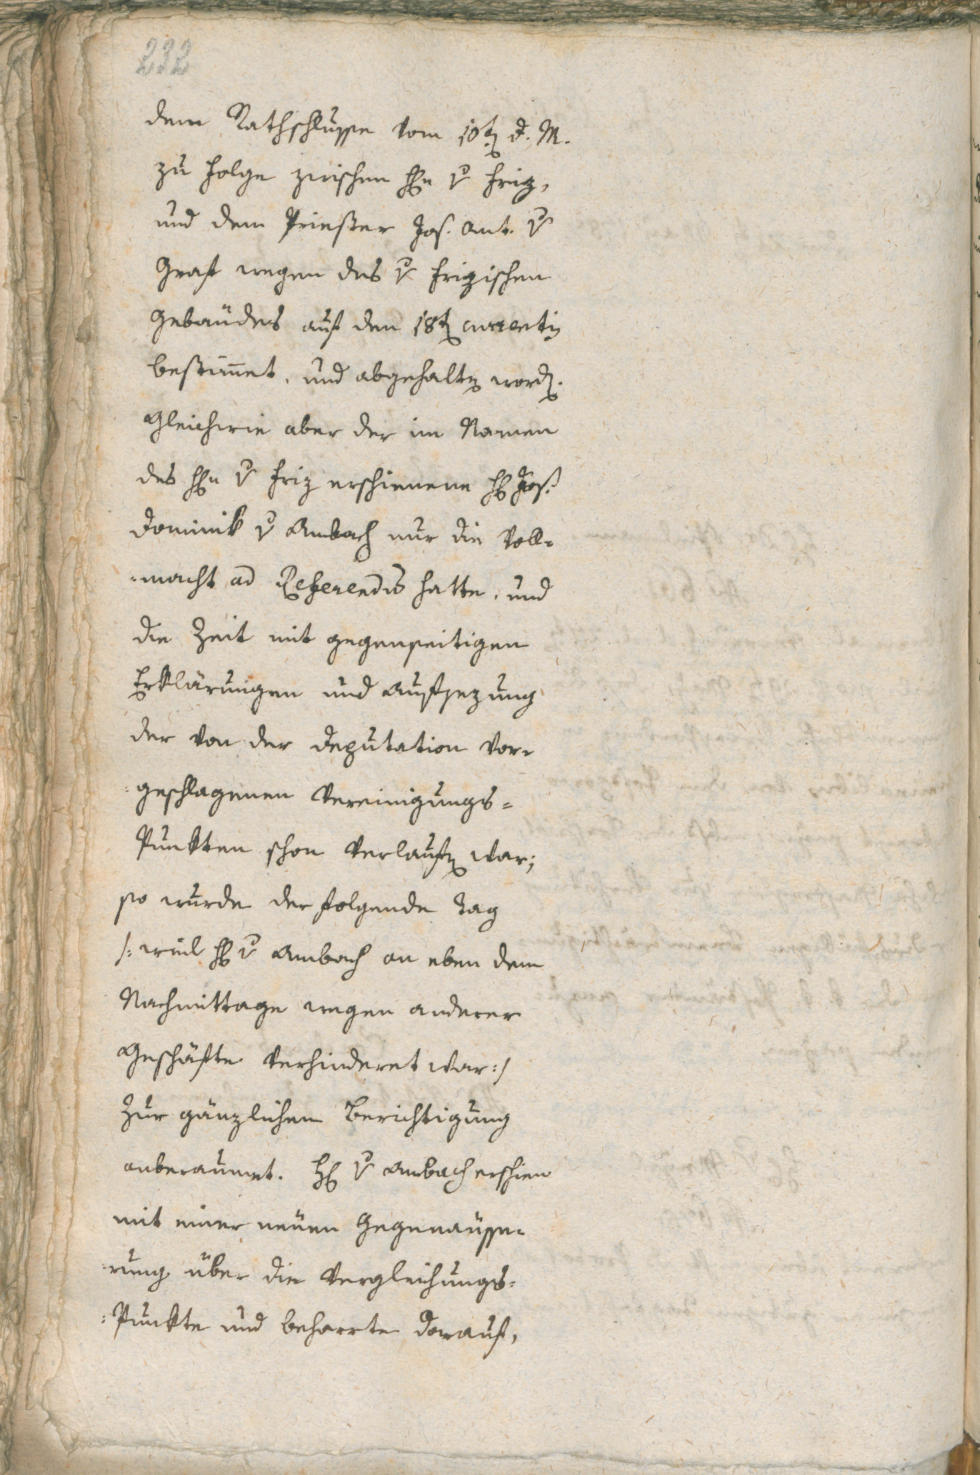 232
dem Rathschlusse vom 10t d. M.
zu folge zwischen H v Friz,
und dem Priester Jos. Ant. v
Graff wegen des v Frizischen
Gebäudes auf den 18t currentis
bestimmet, und abgehalten worden.
Gleichwie aber der im Namen
des H v Friz erschienene H Jos.
Dominik v Ambach nur die Voll-
-macht ad Referendum hatte, und
die Zeit mit gegenseitigen
Erklärungen und Aufsezung
der von der Deputation vor-
geschlagenen Vereinigungs-
Punkten schon verlaufen war;
so wurde der folgende Tag
/: weil H v Ambach an eben dem
Nachmittage wegen anderer
Geschäfte verhinderet war :/
zur gänzlichen Berichtigung
anberaumet. H v Ambach erschien
mit einer neuen Gegenäusse-
rung über die Vergleichungs-
-Punkte und beharrte darauf,